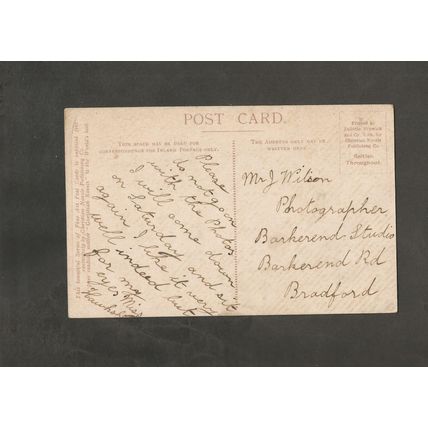 POST CARD.
THIS SPACE MAY BE USED FOR
CORRESPONDENCE FOR INLAND POSTAGE ONLY.
THE ADDRESS ONLY MAY BE
WRITTEN HERE.
Printed by
and Co. Ltd. for
Christian Novels
Publishing Co.
British
Throughout.
Please
do not go on
with the Photos
I will come down
on Saturday and sit
again I like it very
well indeed but
for my
eyes
Miss
Mr J Wilson
Photographer
Barkerend Studio
Barkerend Rd
Bradford